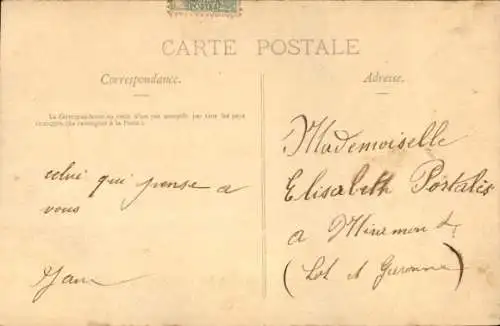 CARTE POSTALE
Correspondance.
Adresse.
La Correspondance au recto n'est pas acceptée par tous les pays
(se renseigner à la Poste).
Mademoiselle
Elisabeth Portalès
a Miramon d.
(Lot et Garonne)
celui qui pense a
vous